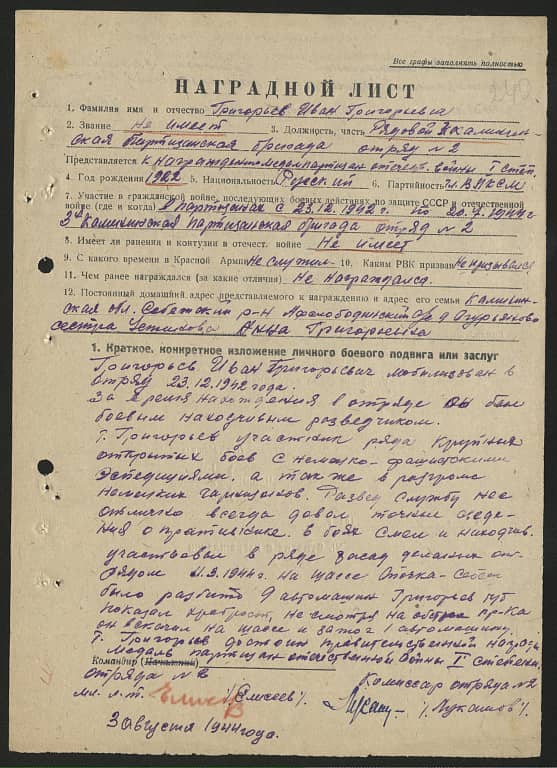 Все графы заполнять полностью
НАГРАДНОЙ ЛИСТ
1. Фамилия имя и отчество Григорьев Иван Григорьевич
2. Звание не имеет 3. Должность, часть Рядовой 3 калинин-
ская Партизанская бригада отряд № 2
Представляется к награждению медал партизан отечеств. войны I степ.
4. Год рождения 1922 5. Национальность Русский 6. Партийность чл. ВЛКСМ
7. Участие в гражданской войне, последующих боевых действиях по защите СССР и отечественной
войне (где и когда) в Партизанах с 23.12.1942г по 20.7.1944г
3я Калининская партизанская бригада отряд № 2
8. Имеет ли ранения и контузии в отечест. войне Не имеет
9. С какого времени в Красной Армии Не служил 10. Каким РВК призван Не призывался
11. Чем ранее награждался (за какие отличия) Не награждался.
12. Постоянный домашний адрес представляемого к награждению и адрес его семьи Калинин-
ская обл. Советский р-н д. Огурьяково
сестра Анна Григорьевна
1. Краткое, конкретное изложение личного боевого подвига или заслуг
Григорьев Иван Григорьевич мобилизован в
отряд 23.12.1942 года.
За время нахождения в отряде он был
боевым находчивым разведчиком.
Т. Григорьев участник ряда крупных
открытых боев с немецко-фашистскими
экспедициями, а так же в разгроме
немецких гарнизонов. Развед службу нес
отлично всегда давал точные сведе-
ния о противнике. В боях смел и находчив.
участвовал в ряде засад делаемых от-
рядом 11.3.1944г. на шоссе Опочка-Себеж
было разбито 9 автомашин Григорьев тут
показал храбрость, не смотря на обстрел пр-ка
он вскочил на шоссе и зажог 1 автомашину.
Т. Григорьев достоин правительственной награды
медаль партизан отечественной войны I степени.
Командир (Начальник)
отряда № 2 Комиссар отряда № 2
мл. л-т. /Елисеев/. /Лукашов/.
3 августа 1944 года.